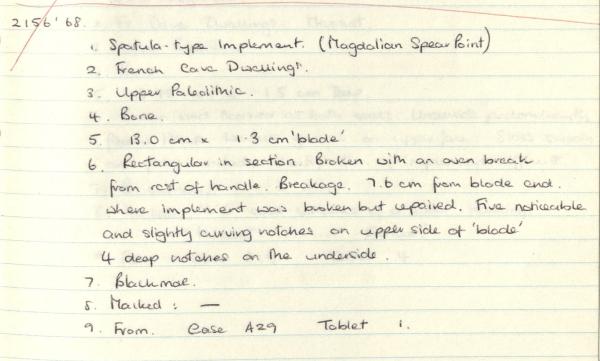 2156'68.
1. Spatula-type Implement. (Magdalian Spear Point)
2. French Cave Dwellings.
3. Upper Paleolithic.
4. Bone.
5. 13.0 cm x 1.3 cm 'blade'
6. Rectangular in section. Broken with an even break
from rest of handle. Breakage. 7.6 cm from blade end.
where implement was broken but repaired. Five noticeable
and slightly curving notches on upper side of 'blade'
4 deep notches on the underside.
7. Blackmoe.
8. Marked : —
9. From. Case A29 Tablet 1.